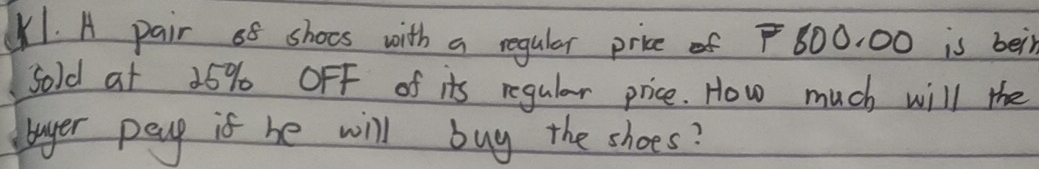 X1. A pair of shoes with a regular price of ₱800.00 is bein
sold at 25% OFF of its regular price. How much will the
buyer pay if he will buy the shoes?